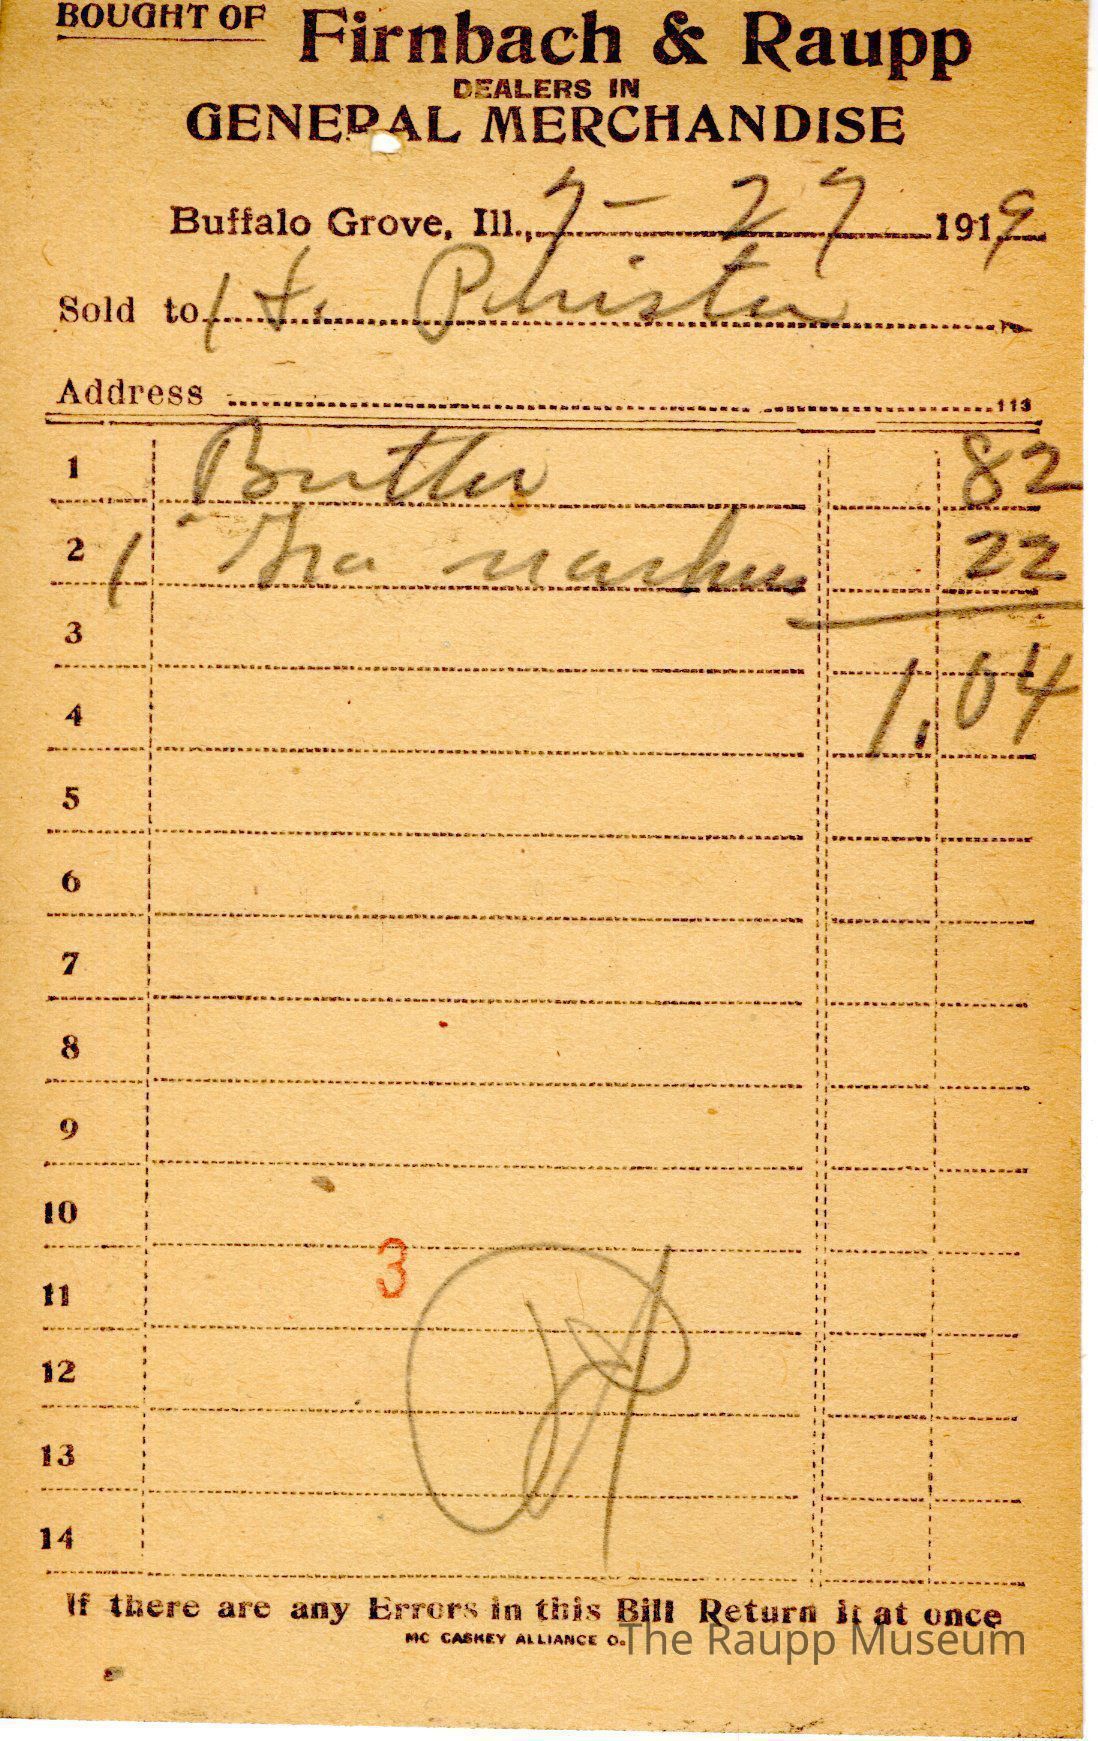 BOUGHT OF Firnbach & Raupp
DEALERS IN
GENERAL MERCHANDISE
Buffalo Grove, Ill., 7-27 1919
Sold to H. Phister
Address
113
1 Butter 82
2 1 22
3
4 1.04
5
6
7
8
9
10
3
11
12
13
14
If there are any Errors in this Bill Return it at once
MC CASKEY ALLIANCE O.
The Raupp Museum